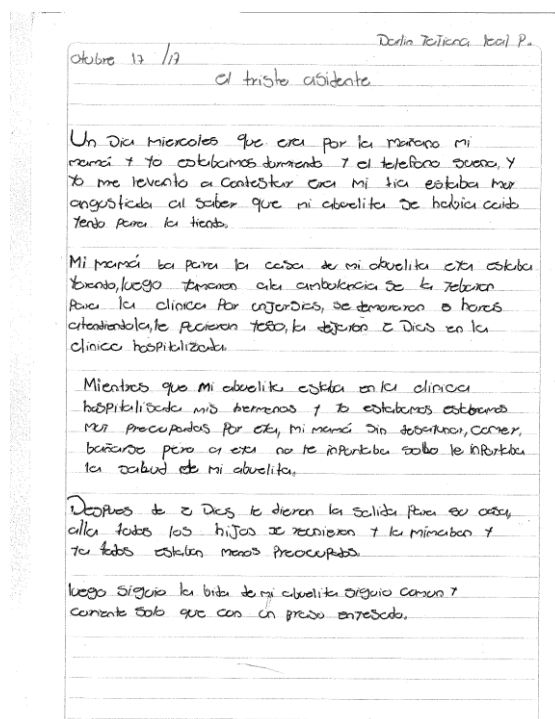 Darlin Tatiana leal P.
Otubre 17 /17
el triste asidente
Un Dia miercoles que era por la mañana mi
mamá y yo estabamos durmiendo y el telefono suena, y
yo me levanto a contestar era mi tia estaba muy
angustiada al saber que mi abuelita se habia caido
yendo para la tienda.
Mi mamá ba para la casa de mi abuelita eya estaba
yorando, luego yamaron ala ambulancia se la yebaron
para la clinica por urjensias, se demoraron 8 horas
atendiendola, le pucieron yeso, la dejaron 2 Dias en la
clinica hospitalizada.
Mientras que mi abuelita estaba en la clinica
hospitalisada mis hermanos y yo estabamos estabamos
muy preocupados por eya, mi mamá sin desallunar, comer,
bañarse pero a eya no le inportaba sollo le inportaba
la salud de mi abuelita.
Despues de 2 Dias le dieron la salida para su casa,
alla todos los hijos se reunieron y la mimaban y
ya todos estaban menos preocupados.
luego siguio la bida de mi abuelita siguio comun y
coriente solo que con un braso enyesado.